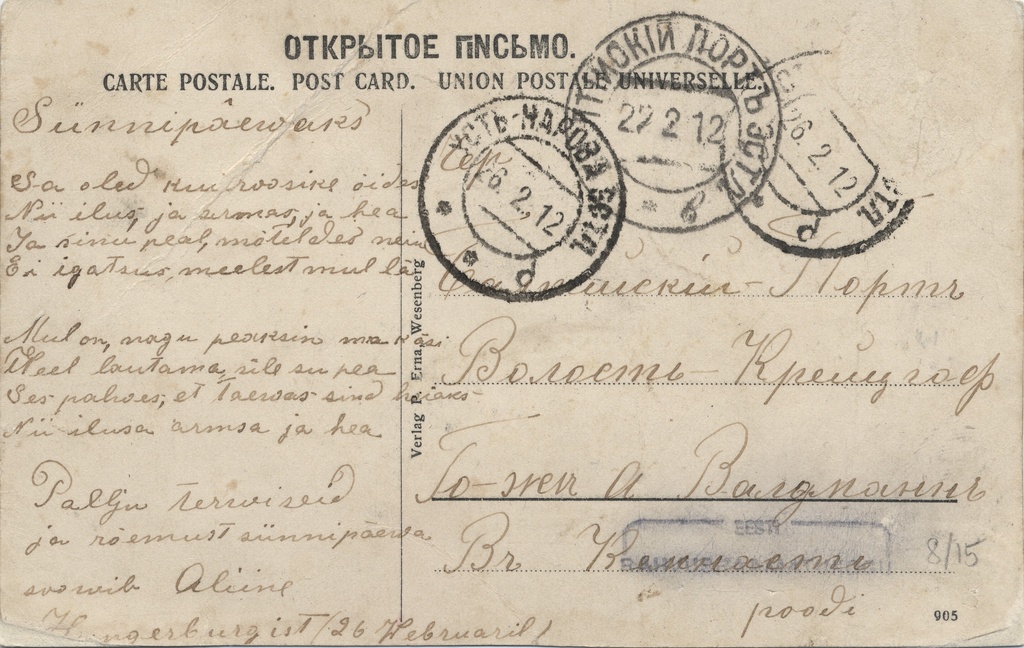 ОТКРЫТОЕ ПИСЬМО.
CARTE POSTALE. POST CARD. UNION POSTALE UNIVERSELLE.
Sünnipäewaks
Sa oled kui roosike õides
Nii ilus, ja armas, ja hea
Ja sinu peal, mõteldes
Ei igatsus, meelest mul
Mul on, nagu peaksin ma käsi
Weel lautama, sile su pea
Ses palwes, et taewas sind hoiaks
Nii ilusa armsa ja hea
Palju terwiseid
ja rõemust sünnipäewa
soowib Aliine
Hungerburgist /26 Webruaril/
Verlag P. Erna, Wesenberg
УСТЬ-НАРОВА ЭСТЛ
26.2.12
ТІЙСКІЙ ПОРТЪ ЭСТЛ
27 2 12
б
26.2.12
СТЛ
Балтийскій-Портъ
Волость-Крейцгоф
Го-жи А Валдманнъ
Въ
poodi
EESTI
8/15
905